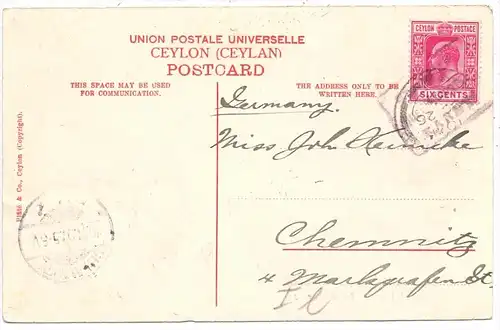 UNION POSTALE UNIVERSELLE
CEYLON (CEYLAN)
POSTCARD
THIS SPACE MAY BE USED
FOR COMMUNICATION.
THE ADDRESS ONLY TO BE
WRITTEN HERE.
CEYLON POSTAGE
SIX CENTS
Germany.
Miss Joh. Reinecke
Chemnitz
4 Markgrafen St.
Plâté & Co., Ceylon (Copyright).